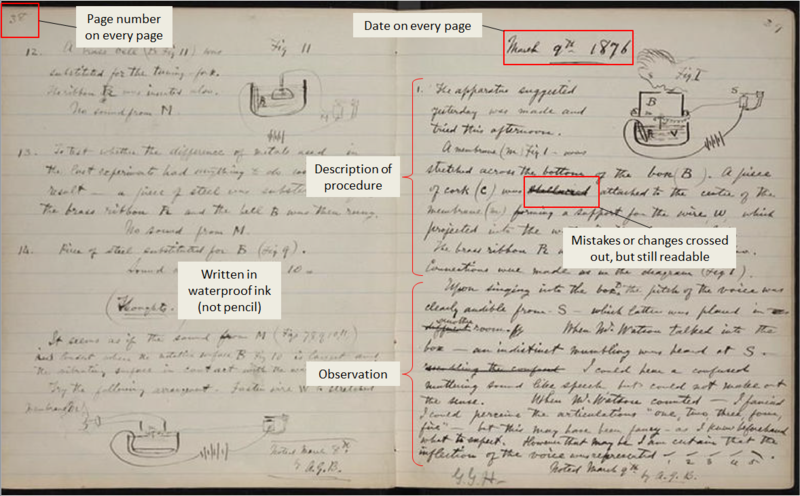 38
Page number
on every page
12. A brass bell (B Fig 11) was
Fig 11
substituted for the tuning-fork.
The ribbon R was inserted alone.
No sound from M.
13. To test whether the difference of metals used in
the last experiments had anything to do
result — a piece of steel was
the brass ribbon R and the bell B was then rung.
No sound from M.
14. Piece of steel substituted for B (Fig 9).
Sound
10.
Written in
waterproof ink
(not pencil)
(Thoughts.
It seems as if the sound from M (Figs 7 8 9 10 11)
the vibrating surface in contact with the
Try the following arrangement. Fasten wire W to stretched
membrane
Noted March 8th
by A.G.B.
Date on every page
March 9th 1876
Fig. 1
B
S
Description of
procedure
1. The apparatus suggested
yesterday was made and
tried this afternoon.
A membrane (m) Fig 1 - was
stretched across the bottom of the box (B). A piece
of cork (c) was attached to the centre of the
membrane (m) forming a support for the wire W, which
projected into the
The brass ribbon R
Connections were made as in the diagram (Fig 1).
Mistakes or changes crossed
out, but still readable
Observation
Upon singing into the box, the pitch of the voice was
clearly audible from S - which latter was placed in
another room. When Mr. Watson talked into the
box — an indistinct mumbling was heard at S.
I could hear a confused
muttering sound like speech but could not make out
the sense. When Mr. Watson counted — I fancied
I could perceive the articulations "one, two, three, four,
five" — but this may have been fancy - as I knew beforehand
what to expect. However that may be I am certain that the
inflection of the voice was represented
1 2 3 4 5
Noted March 9th
by A.G.B.
G.G.H.